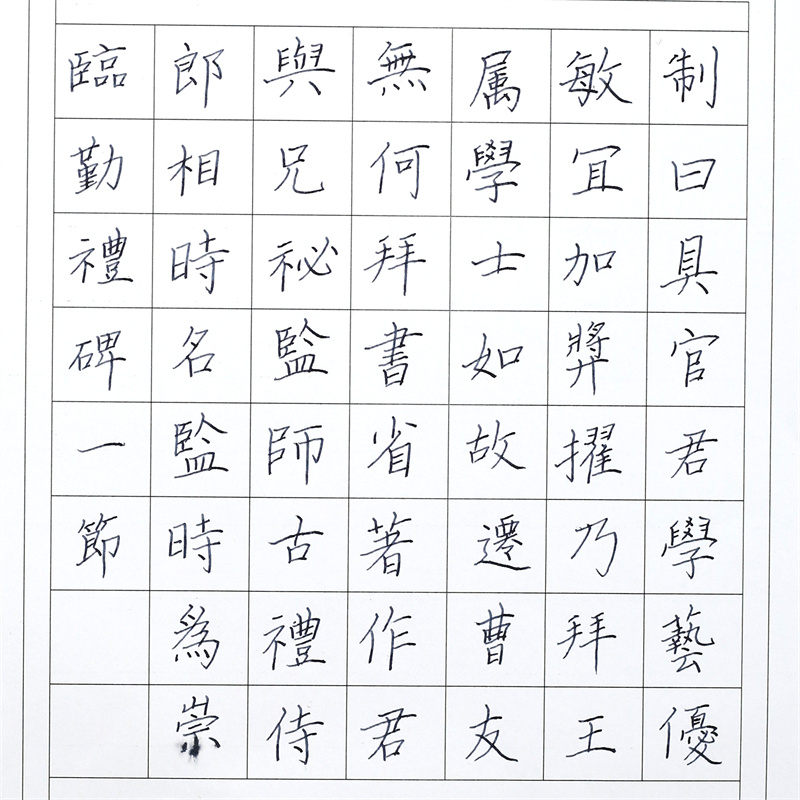 制曰具官君學藝優
敏冝加奬擢乃拜王
属學士如故遷曹友
無何拜書省著作君
與兄祕監師古禮侍
郎相時名監時為崇
臨勤禮碑一節